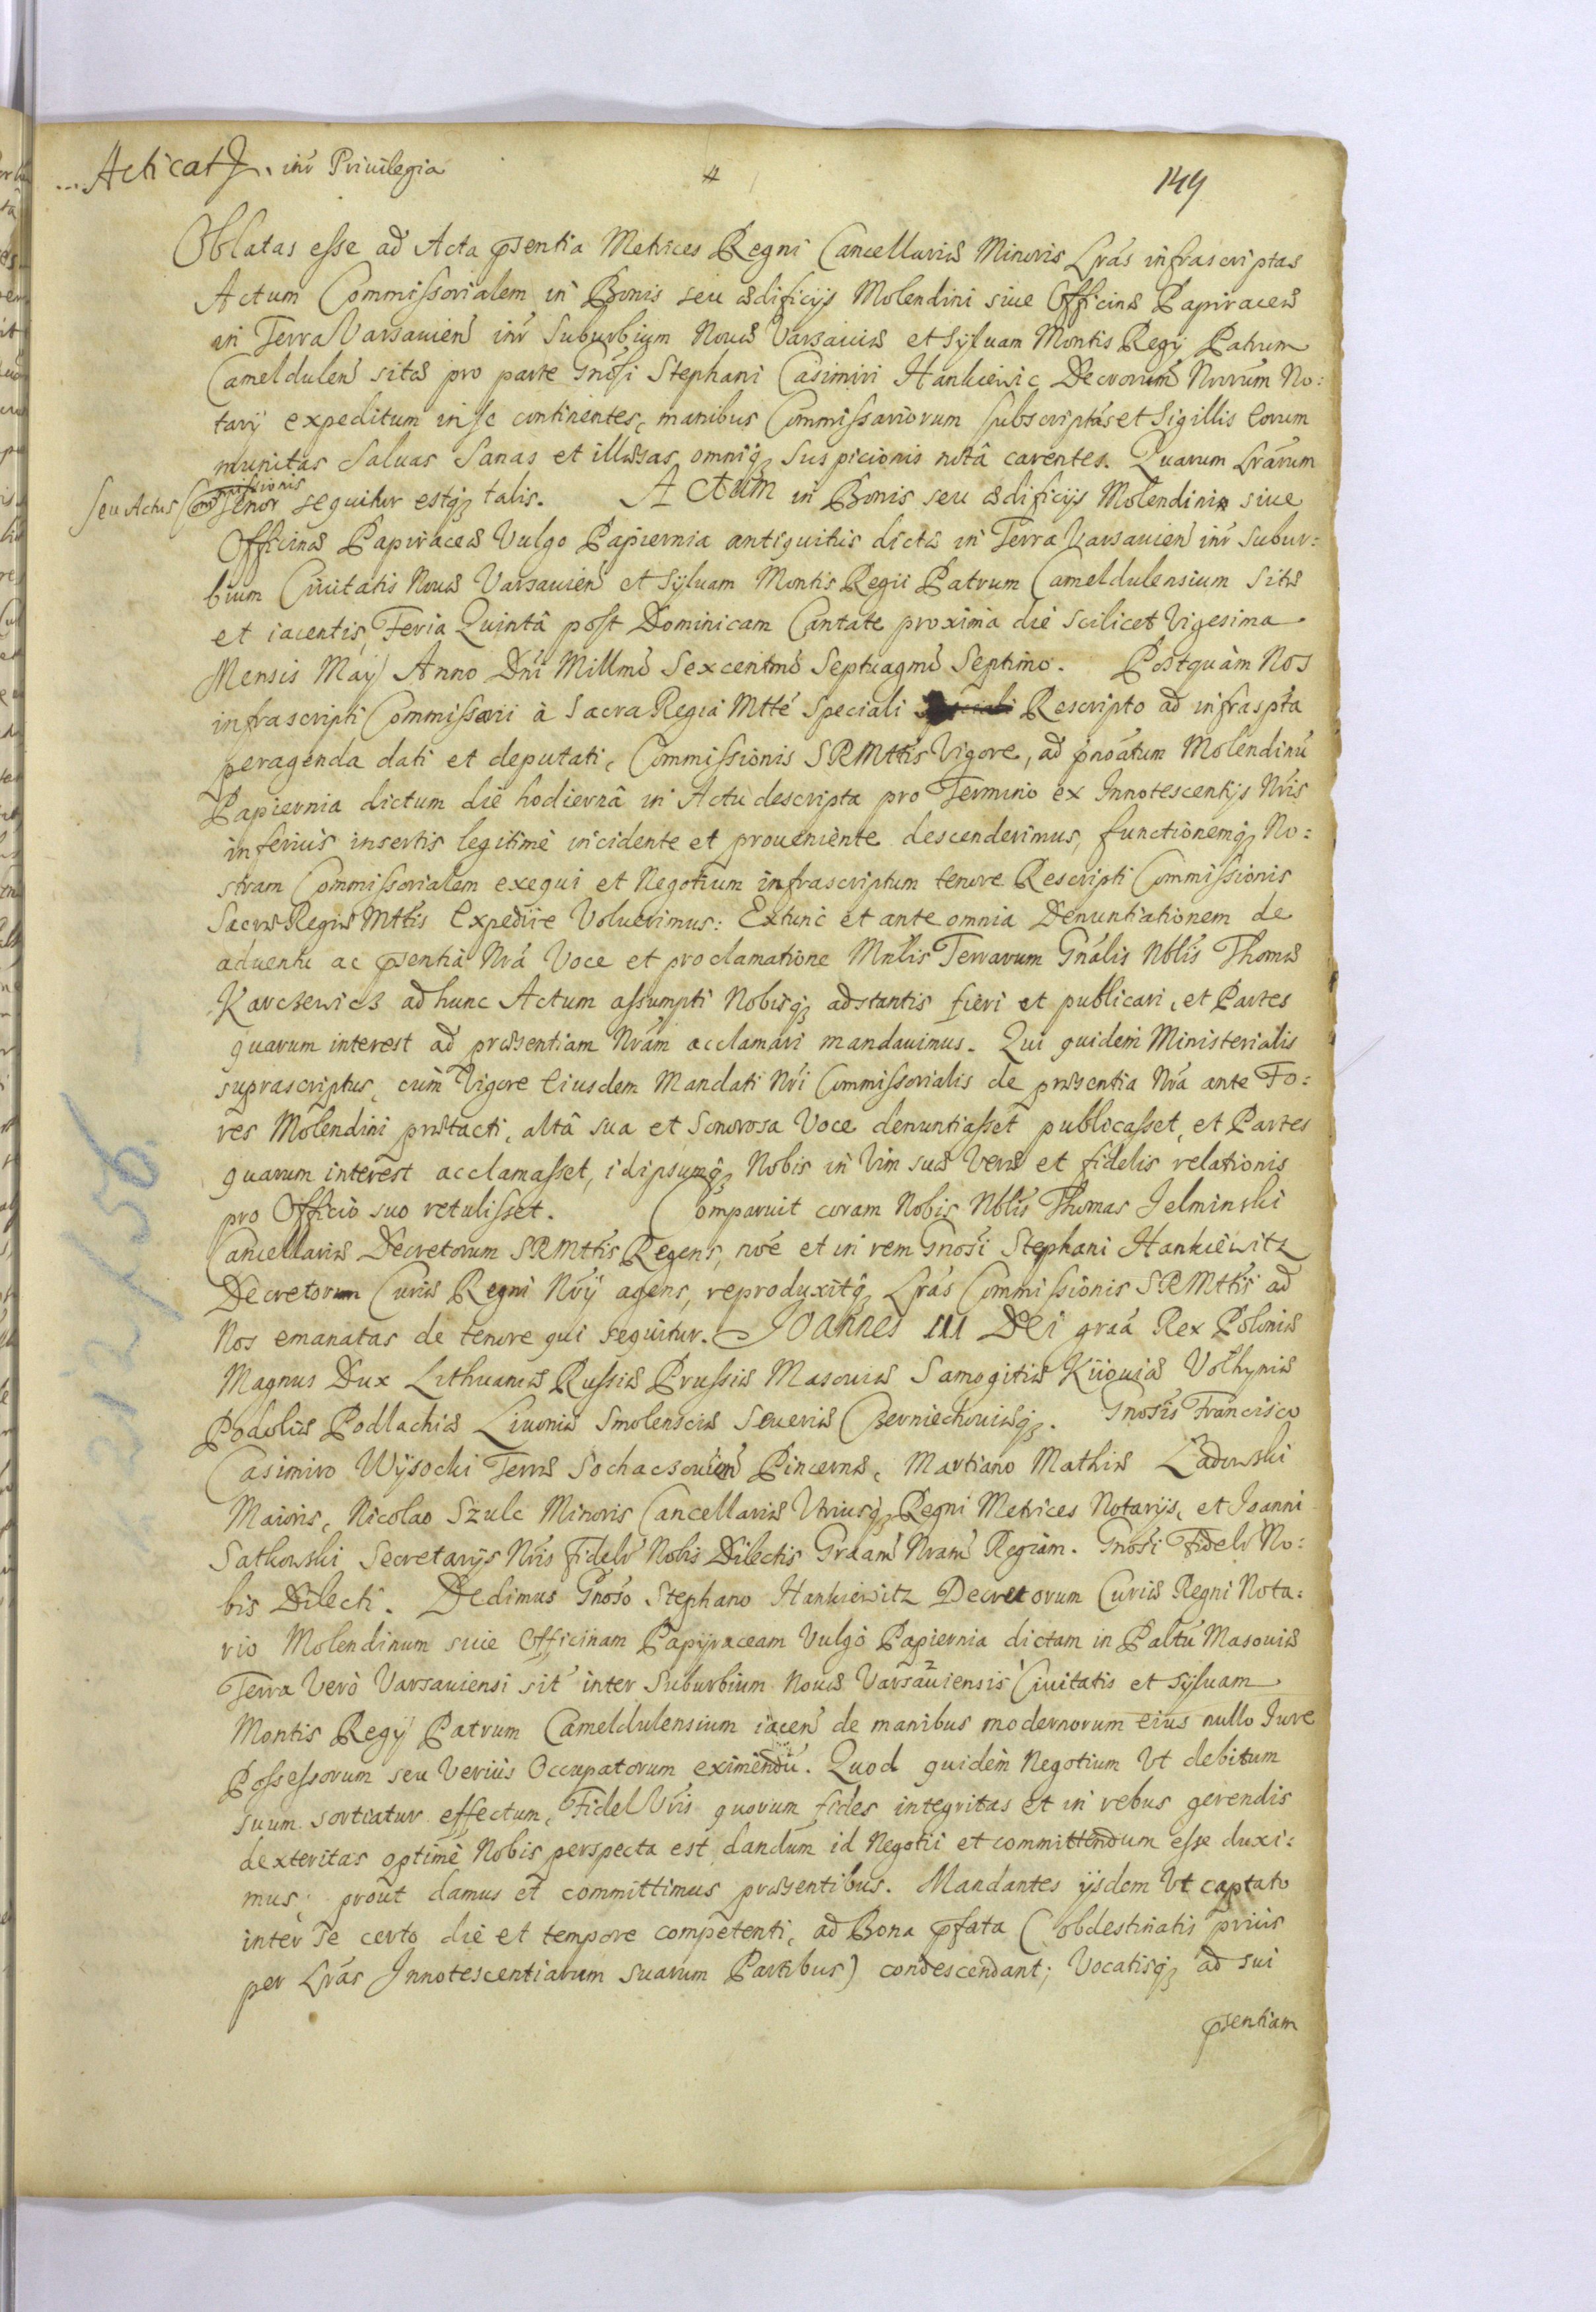 ...Acticat. inr̃ Priuilegia
#
149
Oblatas esse ad Acta p̃sentia Metrices Regni Cancellariæ Minoris Lrãs infrascriptas
Actum Commissorialem in Bonis seu ædificijs Molendini siue Officinæ Papiraceæ
in Terra Varsauien̄ inr̃ Suburbium Nouæ Varsauiæ et Syluam Montis Regij Patrum
Cameldulen̄ sitæ pro parte Gnõsi Stephani Casimiri Hankiewic Decrorum̃ Nrrũm No:
tarij expeditum in se continentes, manibus Commissariorum subscriptas et Sigillis Eorum
munitas Saluas Sanas et illæsas omniq; Suspicionis notâ carentes. Quarum Lrãrum
seu Actus Commissionis
Tenor sequitur estq; talis. Actum in Bonis seu ædificijs Molendini siue
Officinæ Papiraceæ Vulgo Papiernia antiquitus dictæ in Terra Varsauien̄ inr̃ Subur:
bium Ciuitatis Nouæ Varsauien̄ et Syluam Montis Regii Patrum Cameldulensium Sitæ
et iacentis, Feria Quintâ post Dominicam Cantate proxima die scilicet Vigesima
Mensis Maij Anno Dni Millmõ Sexcentmõ Septuagmõ Septimo. Postquàm Nos
infrascripti Commissarii à Sacra Regia Mtte Speciali Rescripto ad infraspta
peragenda dati et deputati, Commissionis SRMttis Vigore, ad pnoãtum Molendinũ
Papiernia dictum die hodiernâ in Actu descripta pro Termino ex Innotescentijs Nris
inferius insertis legitimè incidente et proueniente descenderimus, functionemq; No:
stram Commissorialem exequi et Negotium infrascriptum tenore Rescripti Commissionis
Sacræ Regiæ Mttis Expedire Voluerimus: Extunc et ante omnia Denuntiationem de
aduentu ac p̃sentia Nrã Voce et proclamatione Mnlis Terrarum Gnãlis Nblis Thomæ
Karczewicz ad hunc Actum assumpti Nobisq; adstantis fieri et publicari, et Partes
quarum interest ad præsentiam Nrãm acclamari mandauimus. Qui quidem Ministerialis
suprascriptus, cum Vigore Eiusdem Mandati Nri Commissorialis de præsentia Nrã ante Fo:
res Molendini prætacti, altâ sua et Sonorosa Voce denuntiasset publicasset, et Partes
quarum interest acclamasset, idipsumq; Nobis in Vim suæ Veræ et fidelis relationis
pro Officio suo retulisset. Comparuit coram Nobis Nblis Thomas Jelminski
Cancellariæ Decretorum SRMttis Regens, noẽ et in rem Gnosi Stephani Hankiewitz
Decretorum Curiæ Regni Nrij agens, reproduxitq; Lrãs Commissionis SRMttis ad
Nos emanatas de tenore qui sequitur. Joannes III Dei graã Rex Poloniæ
Magnus Dux Lithuaniæ Russiæ Prussiæ Masouiæ Samogitiæ Kiiouiæ Volhyniæ
Podoliæ Podlachiæ Liuoniæ Smolensciæ Seueriæ Czerniechouiæq;. Gnosis Francisco
Casimiro Wysocki Terræ Sochaczouien̄ Pincernæ, Martiano Mathiæ Ładowski
Maioris, Nicolao Szulc Minoris Cancellariæ Vtriusq; Regni Metrices Notarijs, et Joanni
Satkowski Secretarijs Nris fidelr̃ Nobis Dilectis Graam̃ Nram̃ Regiam. Gnosi Fidelr̃ No:
bis Dilecti. Dedimus Gnoso Stephano Hankiewitz Decretorum Curiæ Regni Nota:
rio Molendinum siue Officinam Papÿraceam Vulgò Papiernia dictam in Paltũ Masouiæ
Terra Verò Varsauiensi sit̃ inter Suburbium Nouæ Varsauiensis Ciuitatis et Syluam
Montis Regij Patrum Cameldulensium iacen̄ de manibus modernorum eius nullo Jure
Possessorum seu Veriùs Occupatorum eximendũ. Quod quidem Negotium Vt debitum
suum sortiatur effectum, Fidel Vris quorum fides integritas et in rebus gerendis
dexteritas optimè Nobis perspecta est dandum id Negotii et committendum esse duxi:
mus; prout damus et committimus præsentibus. Mandantes ijsdem Vt captato
inter Se certo die et tempore competenti, ad Bona p̃fata (obdestinatis priùs
per Lrãs Innotescentiarum suarum Partibus) condescendant; Vocatisq; ad sui
p̃sentiam